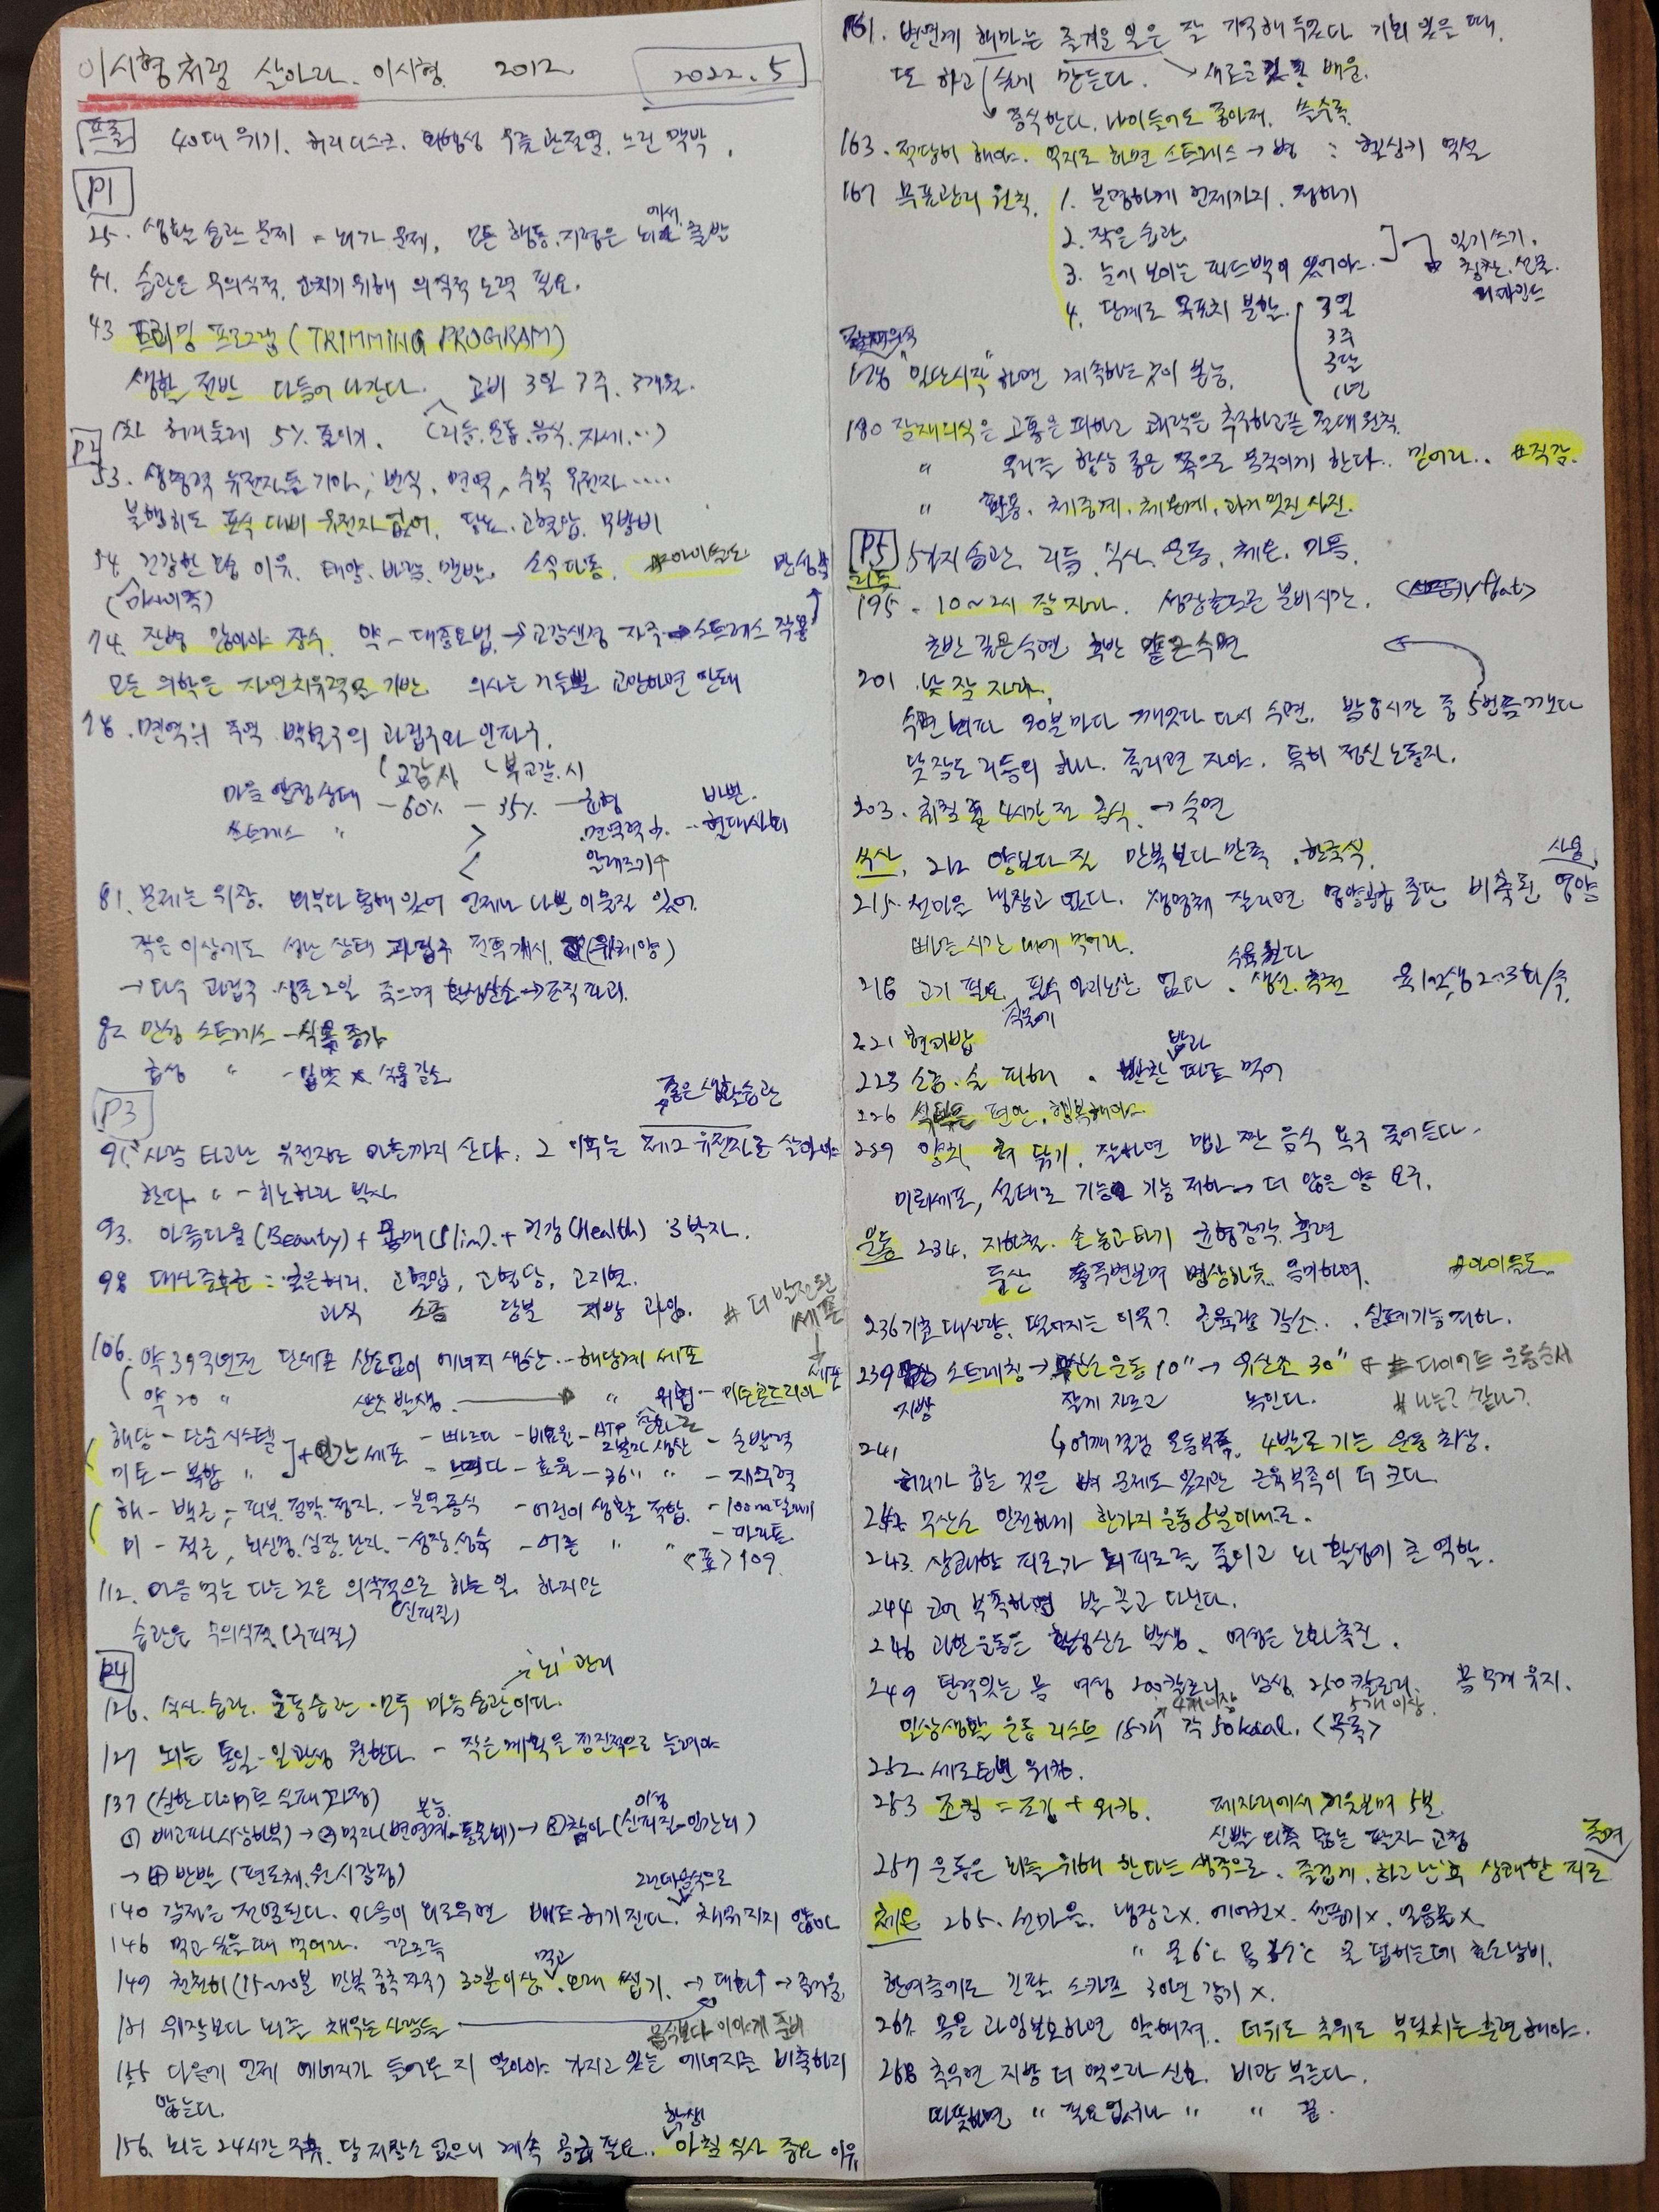 이시형처럼 살아라. 이시형 2012
2022. 5
프롤 40대 위기. 허리디스크. 퇴행성 무릎 관절염. 느린 맥박.
P1
25. 생활 습관 문제 = 뇌가 문제, 모든 행동. 지령은 뇌에서 출발
41. 습관은 무의식적. 고치기 위해 의식적 노력 필요.
43 트리밍 프로그램 (TRIMMING PROGRAM)
생활 전반 다듬어 나간다. 고비 3일 3주. 3개월.
1차 허리둘레 5% 줄이기. (리듬. 운동. 음식. 자세...)
P2
53. 생명력 유전자들 기아, 번식. 면역, 수복 유전자.....
불행히도 포식 대비 유전자 없어. 당뇨. 고혈압. 무방비
54. 건강한 이유. 태양. 바람. 맨발. 소속다동. #아이들도
(마사이족)
74. 잔병 많아야 장수. 약 - 대증요법. → 교감신경 자극 → 스트레스 작용
모든 의학은 자연치유력을 기반. 의사는 거들뿐 교만하면 안돼
78. 면역의 주역 백혈구의 과립구와 임파구.
(교감 시 부교감. 시
마음 안정상태 - 60% - 35% - 균형 바쁜
스트레스 〃 > 면역력↓ .. 현대사회
< 알레르기↑
81. 문제는 위장. 외부와 통해있어 언제나 나쁜 이물질 있어.
작은 이상에도 성난 상태 과립구 전투개시. (위궤양)
→ 다수 과립구. 생존 2일 죽으며 활성산소 → 조직 파괴.
82 만성 스트레스 - 식욕 증가
급성 〃 - 입맛 x 식욕 감소
P3
좋은 생활습관
91. 사람 타고난 유전자로 마흔까지 산다. 그 이후는 제2 유전자로 살아야
한다. 〃 - 히노하라 박사
93. 아름다움 (Beauty) + 몸매 (Slim). + 건강 (Health) 3박자.
98 대사증후군 : 굵은허리, 고혈압, 고혈당, 고지혈.
과식 소금 당분 지방 과잉. # 더 발전된 세포
106. 약 39억년전 단세포 산소없이 에너지 생산 - 해당계 세포
약 20 〃 산소 발생. → 〃 위협 - 미토콘드리아 세포
해당 - 단순 시스템 ] + 인간 세포 - 빠르다 - 비효율 - ATP 2분자 생산 - 순발력
미토 - 복합 〃 - 느리다 - 효율 - 36 〃 〃 - 지구력
해 - 백근, 피부. 점막. 정자. - 분열증식 - 어린이 생활 적합. - 100m 달리기
미 - 적근, 뇌신경. 심장. 난자. - 성장. 성숙 - 어른 〃 〃 - 마라톤
<표> 109.
112. 마음 먹는 다는 것은 의식적으로 하는 일. 하지만
(신피질)
습관은 무의식적. (구피질)
P4
→ '뇌' 관리
126. 식사 습관. 운동습관. 모두 마음습관이다.
127 뇌는 통일 - 일관성 원한다. - 작은 계획을 점진적으로 늘려야
137 (심한 다이어트 실패 과정)
① 배고파 (시상하부) → ② 먹자 (변연계 - 동물뇌) 본능 → ③ 참아 (신피질 - 인간뇌) 이성
→ ④ 반발 (편도체. 원시감정)
140 감정은 전염된다. 마음이 외로우면 배도 허기진다. 채워지지 않아
146 먹고 싶을 때 먹어라.
149 천천히 (15~20분 만복중추 자극) 30분이상. 먹고 오래 씹기. → 대화↑ → 즐거움
151 위장보다 뇌를 채우는 사람들 음식보다 이야기 준비
155 다음에 언제 에너지가 들어올 지 알아야 가지고 있는 에너지를 비축하지
않는다.
학생
156. 뇌는 24시간 가동. 당 저장소 없으니 계속 공급 필요. 아침 식사 중요 이유
161. 변연계 해마는 즐거운 일은 잘 기억해 두었다 기회 있을 때.
또 하고 싶게 만든다. → 새로운 것 배움.
증식한다. 나이들어도 좋아져. 쓸수록
163. 적당히 해야. 억지로 하면 스트레스 → 병 : 헬싱키 역설
167 목표관리 원칙. 1. 분명하게 언제까지. 정하기
2. 작은 습관.
3. 눈에 보이는 피드백이 있어야. 일기쓰기. 칭찬. 선물.
4. 단계로 목표치 분할. 3일
3주
3달
1년
잠재의식
178 "일단시작" 하면 계속하는 것이 본능.
180 잠재의식은 고통은 피하고 쾌락은 추구하고픈 절대 원칙.
〃 우리를 항상 좋은 쪽으로 움직이게 한다.. 믿어라.. #직감.
〃 활용. 체중계. 체온계. 과거 멋진 사진.
P5 5가지 습관. 리듬. 식사. 운동. 체온. 마음.
리듬
195. 10~2시 잠자라. 성장호르몬 분비시간.
초반 깊은수면. 후반 얕은수면
201 낮잠 자라.
수면 뇌파 90분마다 깨었다 다시 수면. 밤 8시간 중 5번쯤 깬다
낮잠도 리듬의 하나. 졸리면 자야. 특히 정신 노동자.
203. 취침 4시간전 금식. → 숙면
식사. 212 양보다 질 만복보다 만족. 한국식.
215. 선마을 냉장고 없다. 생명체 잘리면 영양공급 중단 비축된 영양 사용
빠른 시간 내에 먹어라.
218 고기 필요. 필수 아미노산 없다. 생선. 추천 육1, 생 2~3회/주.
식물에
221 현미밥
223 소금. 술 피해. 반찬 밥과 따로 먹어
226 식탁은 편안. 행복해야.
229 양치. 혀 닦기. 잘하면 맵고 짠 음식 욕구 줄어든다.
미뢰세포, 설태로 기능 저하 → 더 많은 양 요구.
운동 234. 지하철. 손 놓고 타기 균형감각. 훈련
등산 명상하듯. 음미하며. #아이들도.
236 기초대사량. 떨어지는 이유? 근육량 감소.. 심폐기능저하.
239 스트레칭 → 무산소 운동 10" → 유산소 30" # 다이어트 운동순서
지방 잘게 자르고 녹인다. # 나는? 살다?
241. 4발로 기는 운동 최상.
허리가 휘는 것은 뼈 문제도 있지만 근육부족이 더 크다.
242 무산소 안전하게 한가지 운동 5분이내로.
243. 상쾌한 피로가 뇌피로를 줄이고 뇌 활성에 큰 역할.
244 근력 부족하면 발 끌고 다닌다.
246 과한 운동은 활성산소 발생. 여성은 노화촉진.
249 탄력있는 몸 여성 200칼로리 남성 250칼로리. 몸무게 유지.
4개이상 5개 이상.
일상생활 운동 리스트 15개 각 50kcal. <목록>
252. 세로토닌 워킹.
253 조킹 = 조깅 + 워킹. 제자리에서 거울보며 5분.
신발 뒤축 닳는 팔자 교정
257 운동은 뇌를 위해 한다는 생각으로. 즐겁게. 하고 난 후 상쾌할 피로 즐겨
체온 265. 선마을. 냉장고x. 에어컨x. 선풍기x. 얼음물x.
〃 물 6℃ 몸 37℃ 물 덥히는데 효소낭비.
한여름에도 긴팔. 스카프 30년 감기 x.
267. 몸은 과잉보호하면 약해져.. 더위도 추위도 부딪치는 훈련해야.
268 추우면 지방 더 먹으라 신호. 비만 부른다.
따뜻하면 〃 필요없거나 〃 〃 끝.